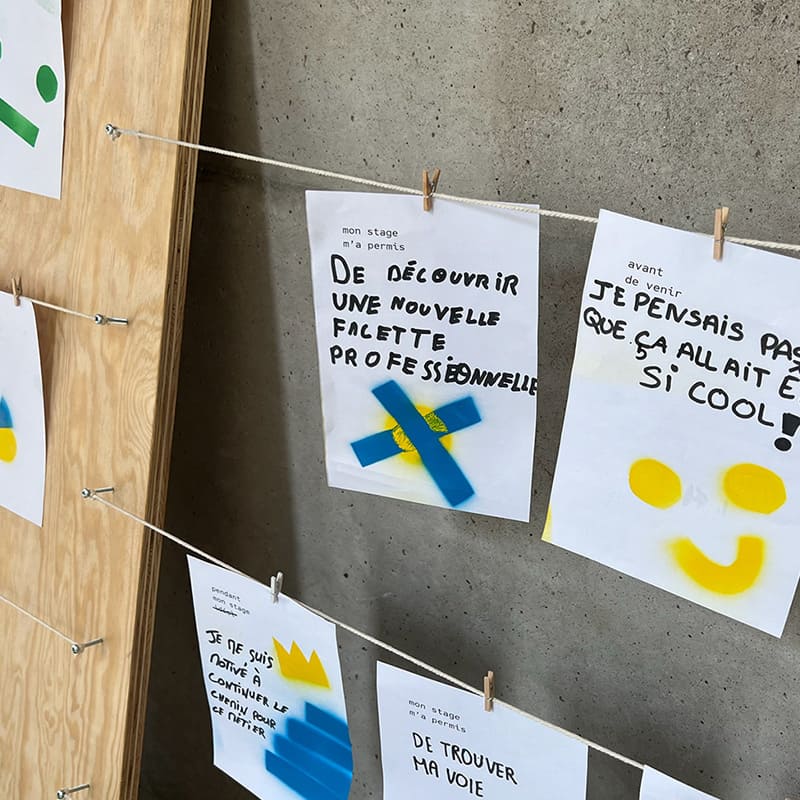 mon stage
m'a permis
DE DÉCOUVRIR
UNE NOUVELLE
FACETTE
PROFESSIONNELLE
avant
de venir
JE PENSAIS PAS
QUE ÇA ALLAIT
SI COOL!
pendant
mon stage
JE ME SUIS
MOTIVÉ À
CONTINUER LE
CHEMIN POUR
CE MÉTIER
mon stage
m'a permis
DE TROUVER
MA VOIE